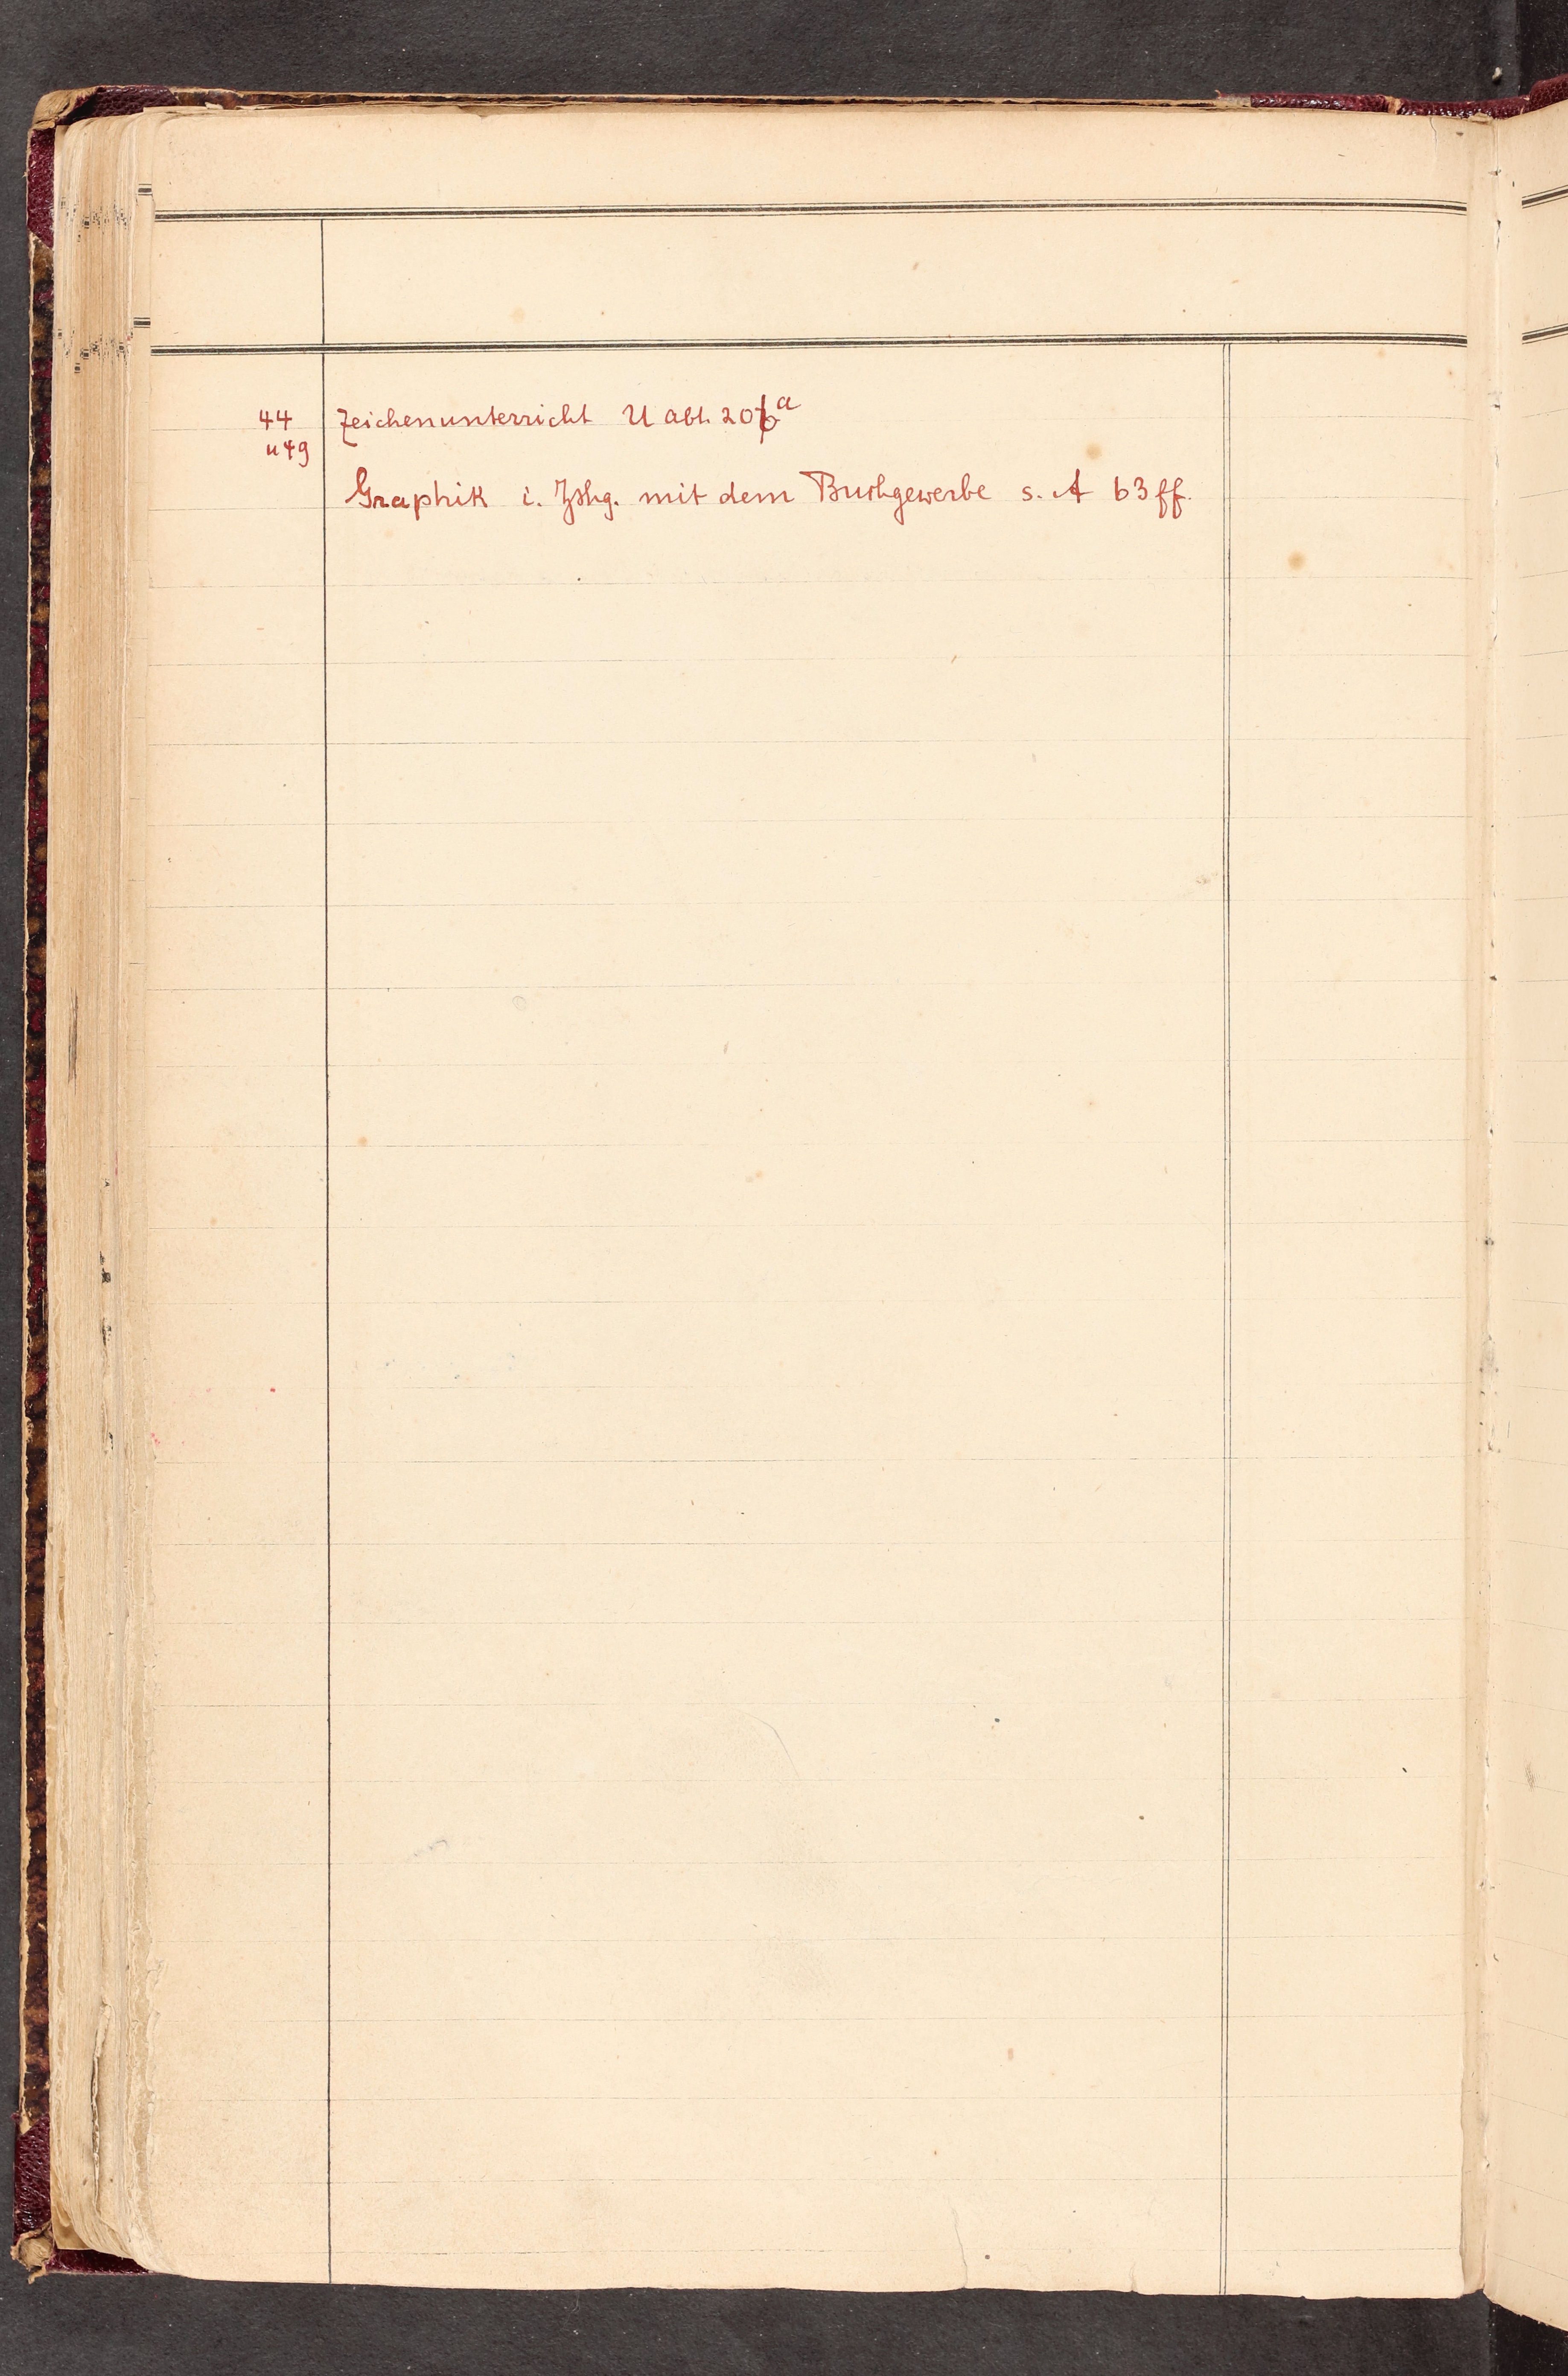 44 Zeichenunterricht U abt. 206a
u 49
Graphik i. Zshg. mit dem Buchgewerbe s. A 63 ff.